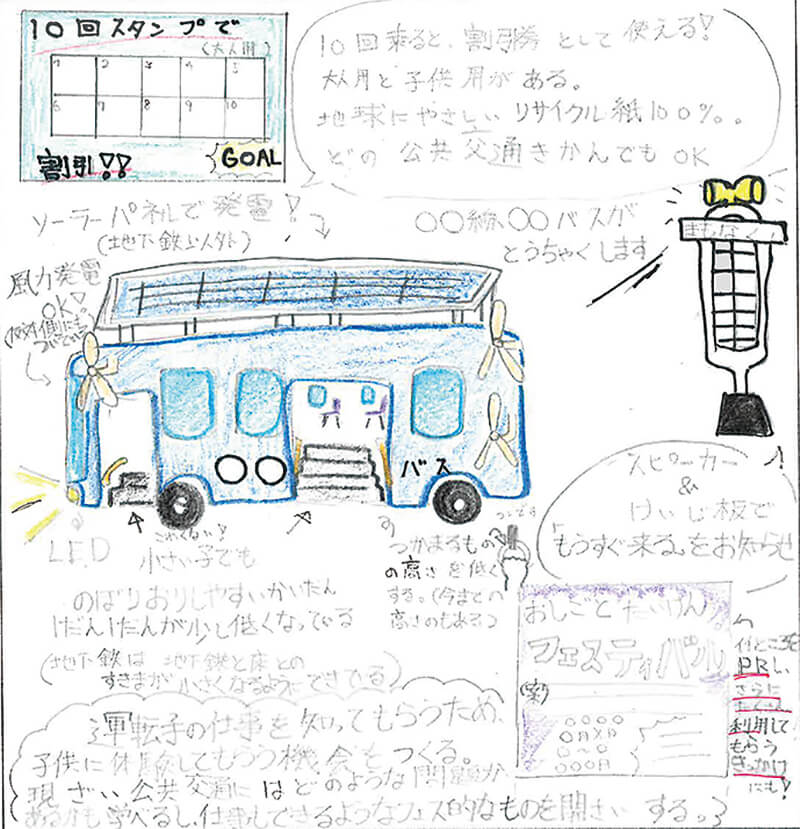 10回スタンプで
(大人用)
1 2 3 4 5
6 7 8 9 10
割引!!
GOAL
10回乗ると、割引券として使える!
大人用と子供用がある。
地球にやさしいリサイクル紙100%。
どの公共交通きかんでもOK
ソーラーパネルで発電!
(地下鉄以外)
〇〇線、〇〇バスが
とうちゃくします
まもなく
風力発電
OK!
(反対側にも
ついている)
バス
スピーカー
&
けいじ板で
「もうすぐ来る」をお知らせ
LED
こわくない!
小さい子でも
のぼりおりしやすいかいだん
1だん1だんが少し低くなっている
(地下鉄は地下鉄と
すきまが小さくなるようにできている)
つかまるもの
の高さを低く
する。(今までの
高さのもある)
おしごとたいけん
フェスティバル
(案)
いいところを
PRし、
さらに
たくさん
利用して
もらう
きっかけ
にも!
運転子の仕事を知ってもらうため、
子供に体験してもらう機会をつくる。
現ざい公共交通にはどのような問題が
あるかも学べるし、仕事もできるようなフェス的なものを開さいする。